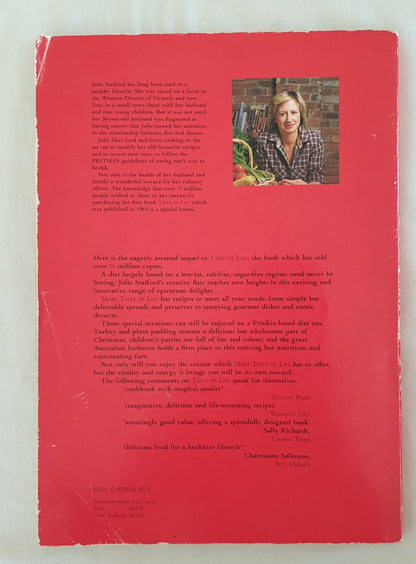 Julie Stafford has long been used to a
healthy lifestyle. She was raised on a farm in
the Western District, of Victoria and now
lives in a small town there with her husband
and two young children. But it was not until
her 30-year-old husband was diagnosed as
having cancer that Julie turned her attention
to the relationship between diet and disease.
Julie likes food and loves cooking so the
art out to modify her old favourite recipes,
and to invent new ones, to follow the
PRITIKIN guidelines of eating one's way to
health.
Not only is the health of her husband and
family a wonderful reward for her culinary
efforts. The knowledge that over ¼ million
people wished to share in her success by
purchasing her first book TASTE OF LIFE which
was published in 1984 is a special bonus.
Here is the eagerly awaited sequel to TASTE OF LIFE, the book which has sold
over ¼ million copies.
A diet largely based on a low-fat, salt-free, sugar-free regime need never be
boring. Julie Stafford's creative flair reaches new heights in this exciting and
innovative range of epicurean delights.
MORE TASTE OF LIFE has recipes to meet all your needs: from simple but
delectable spreads and preserves to tempting gourmet dishes and exotic
desserts.
Those special occasions can still be enjoyed on a Pritikin-based diet too.
Turkey and plum pudding remain a delicious but wholesome part of
Christmas; children's parties are full of fun and colour; and the great
Australian barbecue holds a firm place in this enticing but nutritious and
rejuvenating fare.
Not only will you enjoy the cuisine which MORE TASTE OF LIFE has to offer,
but the vitality and energy it brings you will be its own reward.
The following comments on TASTE OF LIFE speak for themselves.
'cookbook with magical quality'
SUNDAY PRESS
'imaginative, delicious and life-sustaining recipes'
WOMAN'S DAY
'amazingly good value, offering a splendidly designed book'
Sally Richards,
TOORAK TIMES
'delicious food for a healthier lifestyle'
Charmaine Solomon,
SUN HERALD
ISBN 0 909104 85 9
Recommended retail price
Aust.
New Zealand